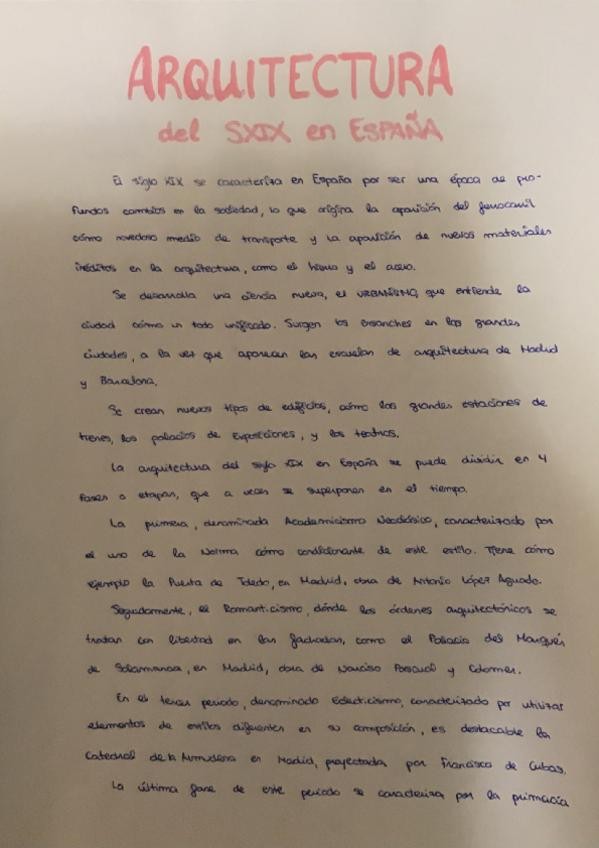 ARQUITECTURA
del SXIX en ESPAÑA
El siglo XIX se caracteriza en España por ser una época de pro-
fundos cambios en la sociedad, lo que origina la aparición del ferrocarril
cómo novedoso medio de transporte y la aparición de nuevos materiales
inéditos en la arquitectura, como el hierro y el acero.
Se desarrolla una ciencia nueva, el URBANISMO, que entiende la
ciudad cómo un todo unificado. Surgen los ensanches en las grandes
ciudades, a la vez que aparecen las escuelas de arquitectura de Madrid
y Barcelona.
Se crean nuevos tipos de edificios, cómo las grandes estaciones de
trenes, los palacios de Exposiciones, y los teatros.
La arquitectura del siglo XIX en España se puede dividir en 4
fases o etapas, que a veces se superponen en el tiempo.
La primera, denominada Academicismo Neoclásico, caracterizado por
el uso de la Norma cómo condicionante de este estilo. Tiene cómo
ejemplo la Puerta de Toledo, en Madrid, obra de Antonio López Aguado.
Seguidamente, el Romanticismo, dónde los órdenes arquitectónicos se
tratan con libertad en las fachadas, como el Palacio del Marqués
de Salamanca, en Madrid, obra de Narciso Pascual y Colomer.
En el tercer periodo, denominado Eclecticismo, caracterizado por utilizar
elementos de estilos diferentes en su composición, es destacable la
Catedral de la Almudena en Madrid, proyectada por Francisco de Cubas.
La última fase de este periodo se caracteriza por la primacía